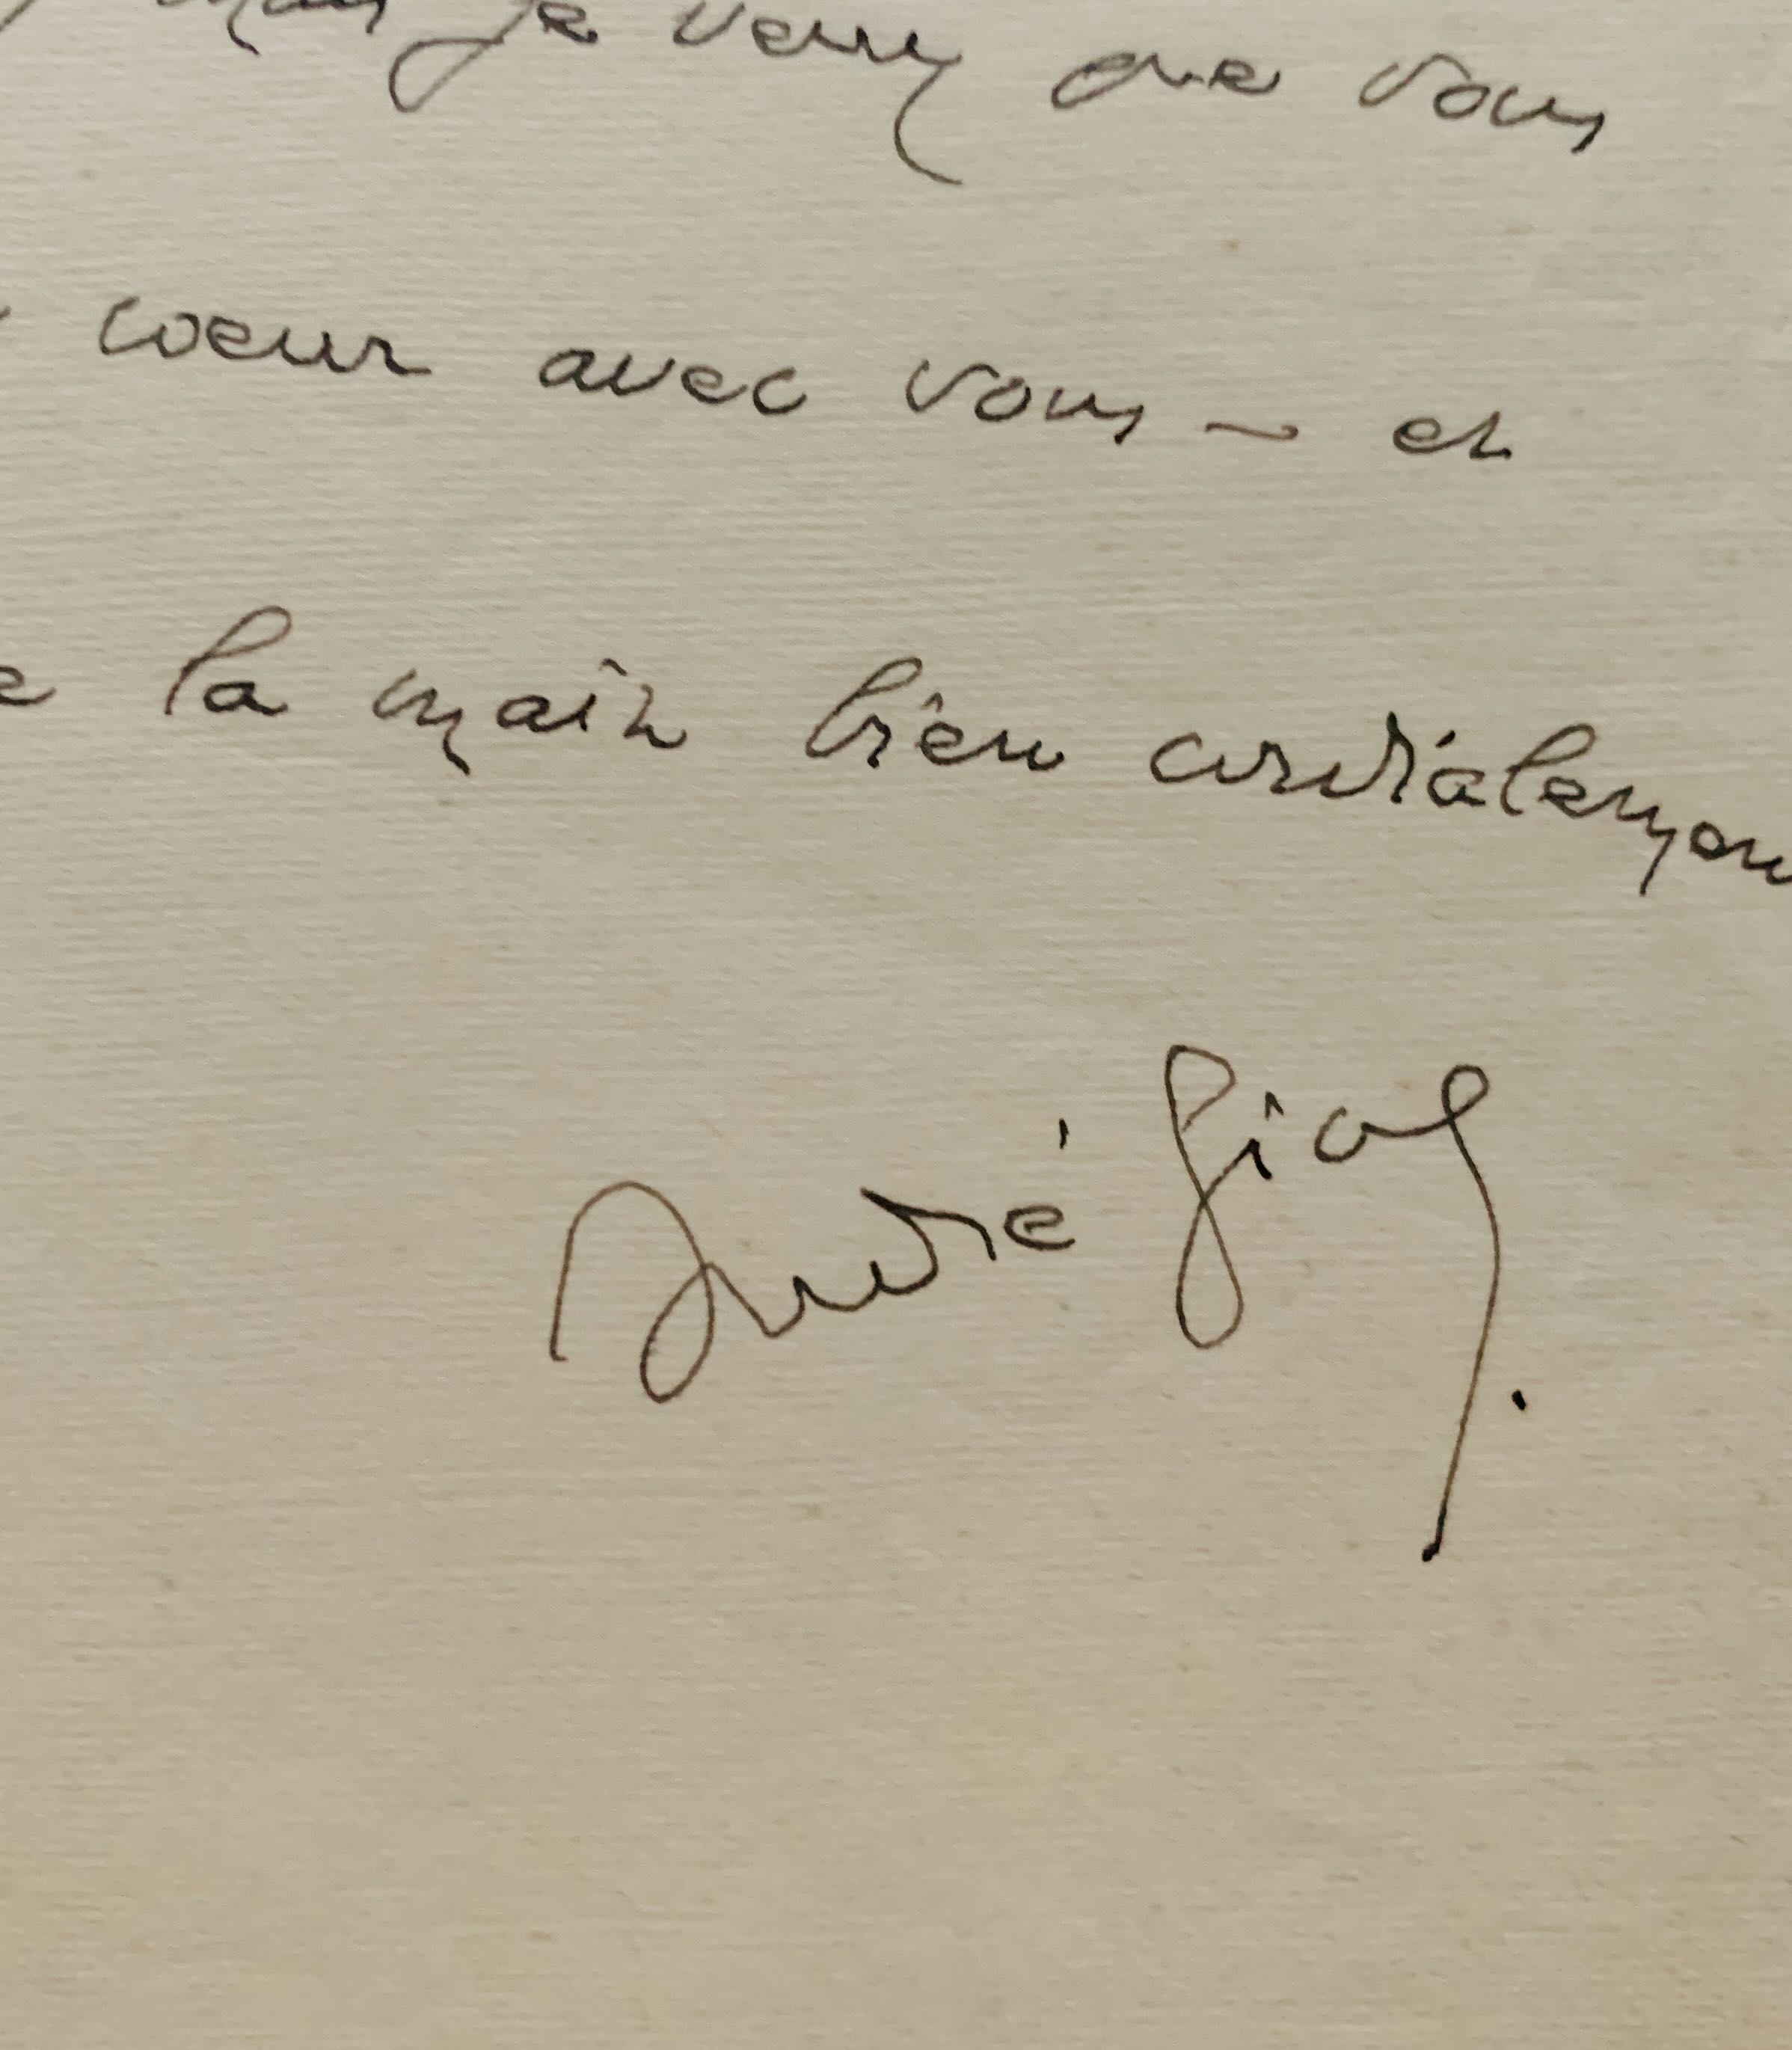 mais je veux que vous
coeur avec vous - et
la main bien cordialemen
André Gide.